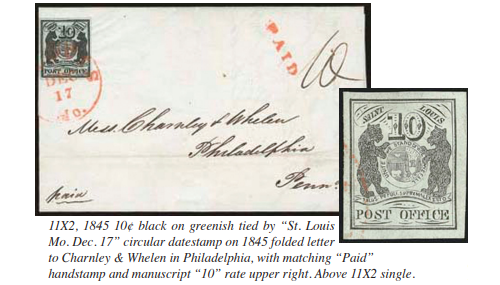 10
POST OFFICE
DEC
17
Mo.
PAID
10
Mess. Charnley & Whelen
Philadelphia
Penna
paid
SAINT LOUIS
10
POST OFFICE
11X2, 1845 10¢ black on greenish tied by “St. Louis
Mo. Dec. 17” circular datestamp on 1845 folded letter
to Charnley & Whelen in Philadelphia, with matching “Paid”
handstamp and manuscript “10” rate upper right. Above 11X2 single.